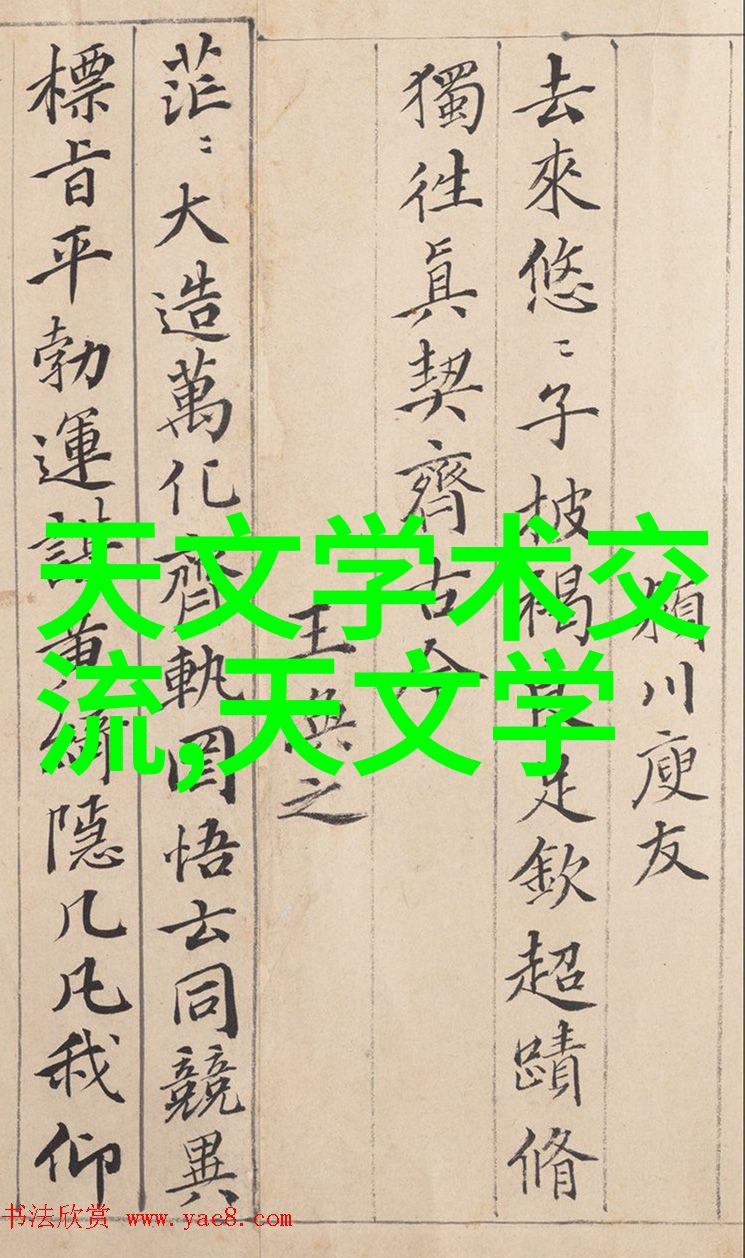 潁川庾友
去來悠〻子披褐良足欽超蹟脩
獨徃真契齊古今
王渙之
茫〻大造萬化齊軌罔悟玄同競異
標旨平勃運謀黃綺隱几凡我仰
天文学术交
流,天文学
书法欣赏 www.yac8.com